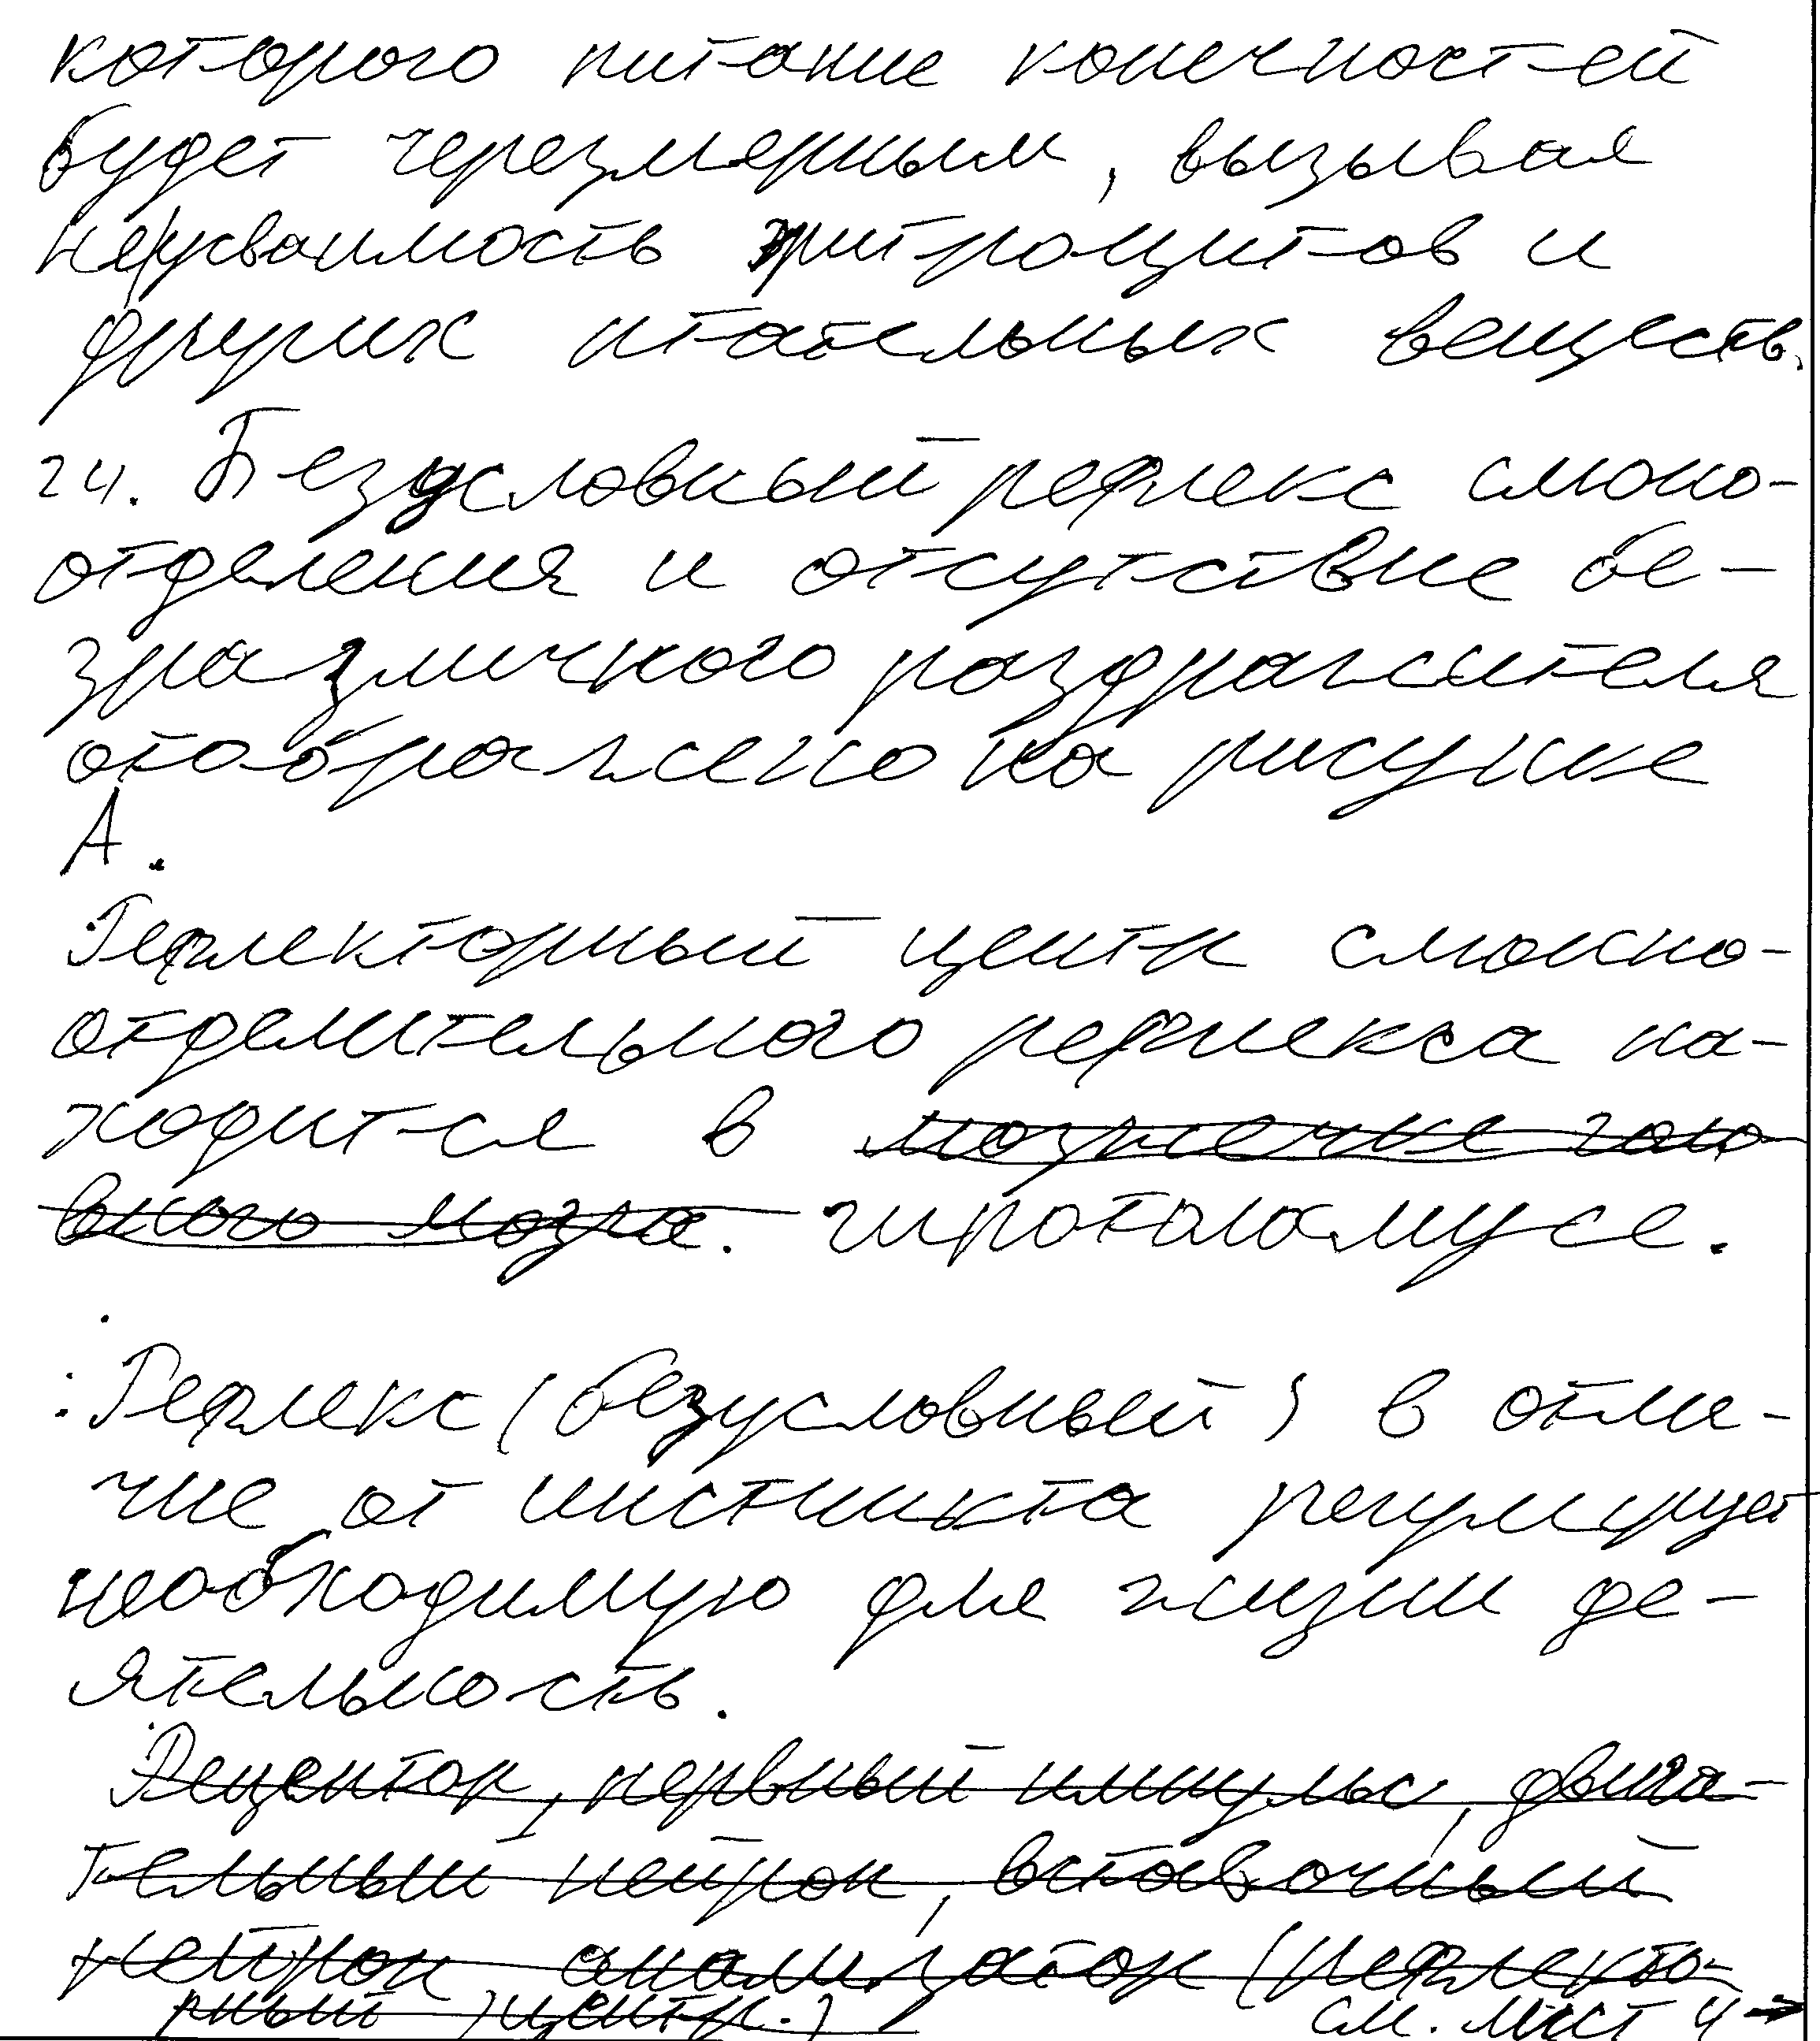 которого питание конечностей
будет черезмерным, вызывая
неусваимость эритроцитов и
других птательных веществ.
24. Безусловный рефлекс слюно-
отделения и отсутствие бе-
зразличного раздражителя
отображено на рисунке
А.
Рефлекторный центр слюнно-
отделительного рефлекса на-
ходится в мозжечке голо
вного мозга. гипоталамусе.
Рефлекс (безусловный) в отли-
чие от инстинкта регулирует
необходимую для жизни де-
ятельность.
Рецептор, нервный импульс, двига-
тельный нейрон, вставочный
нейрон, анализатор (рефлекто-
рный центр.)
см. лист 4 →